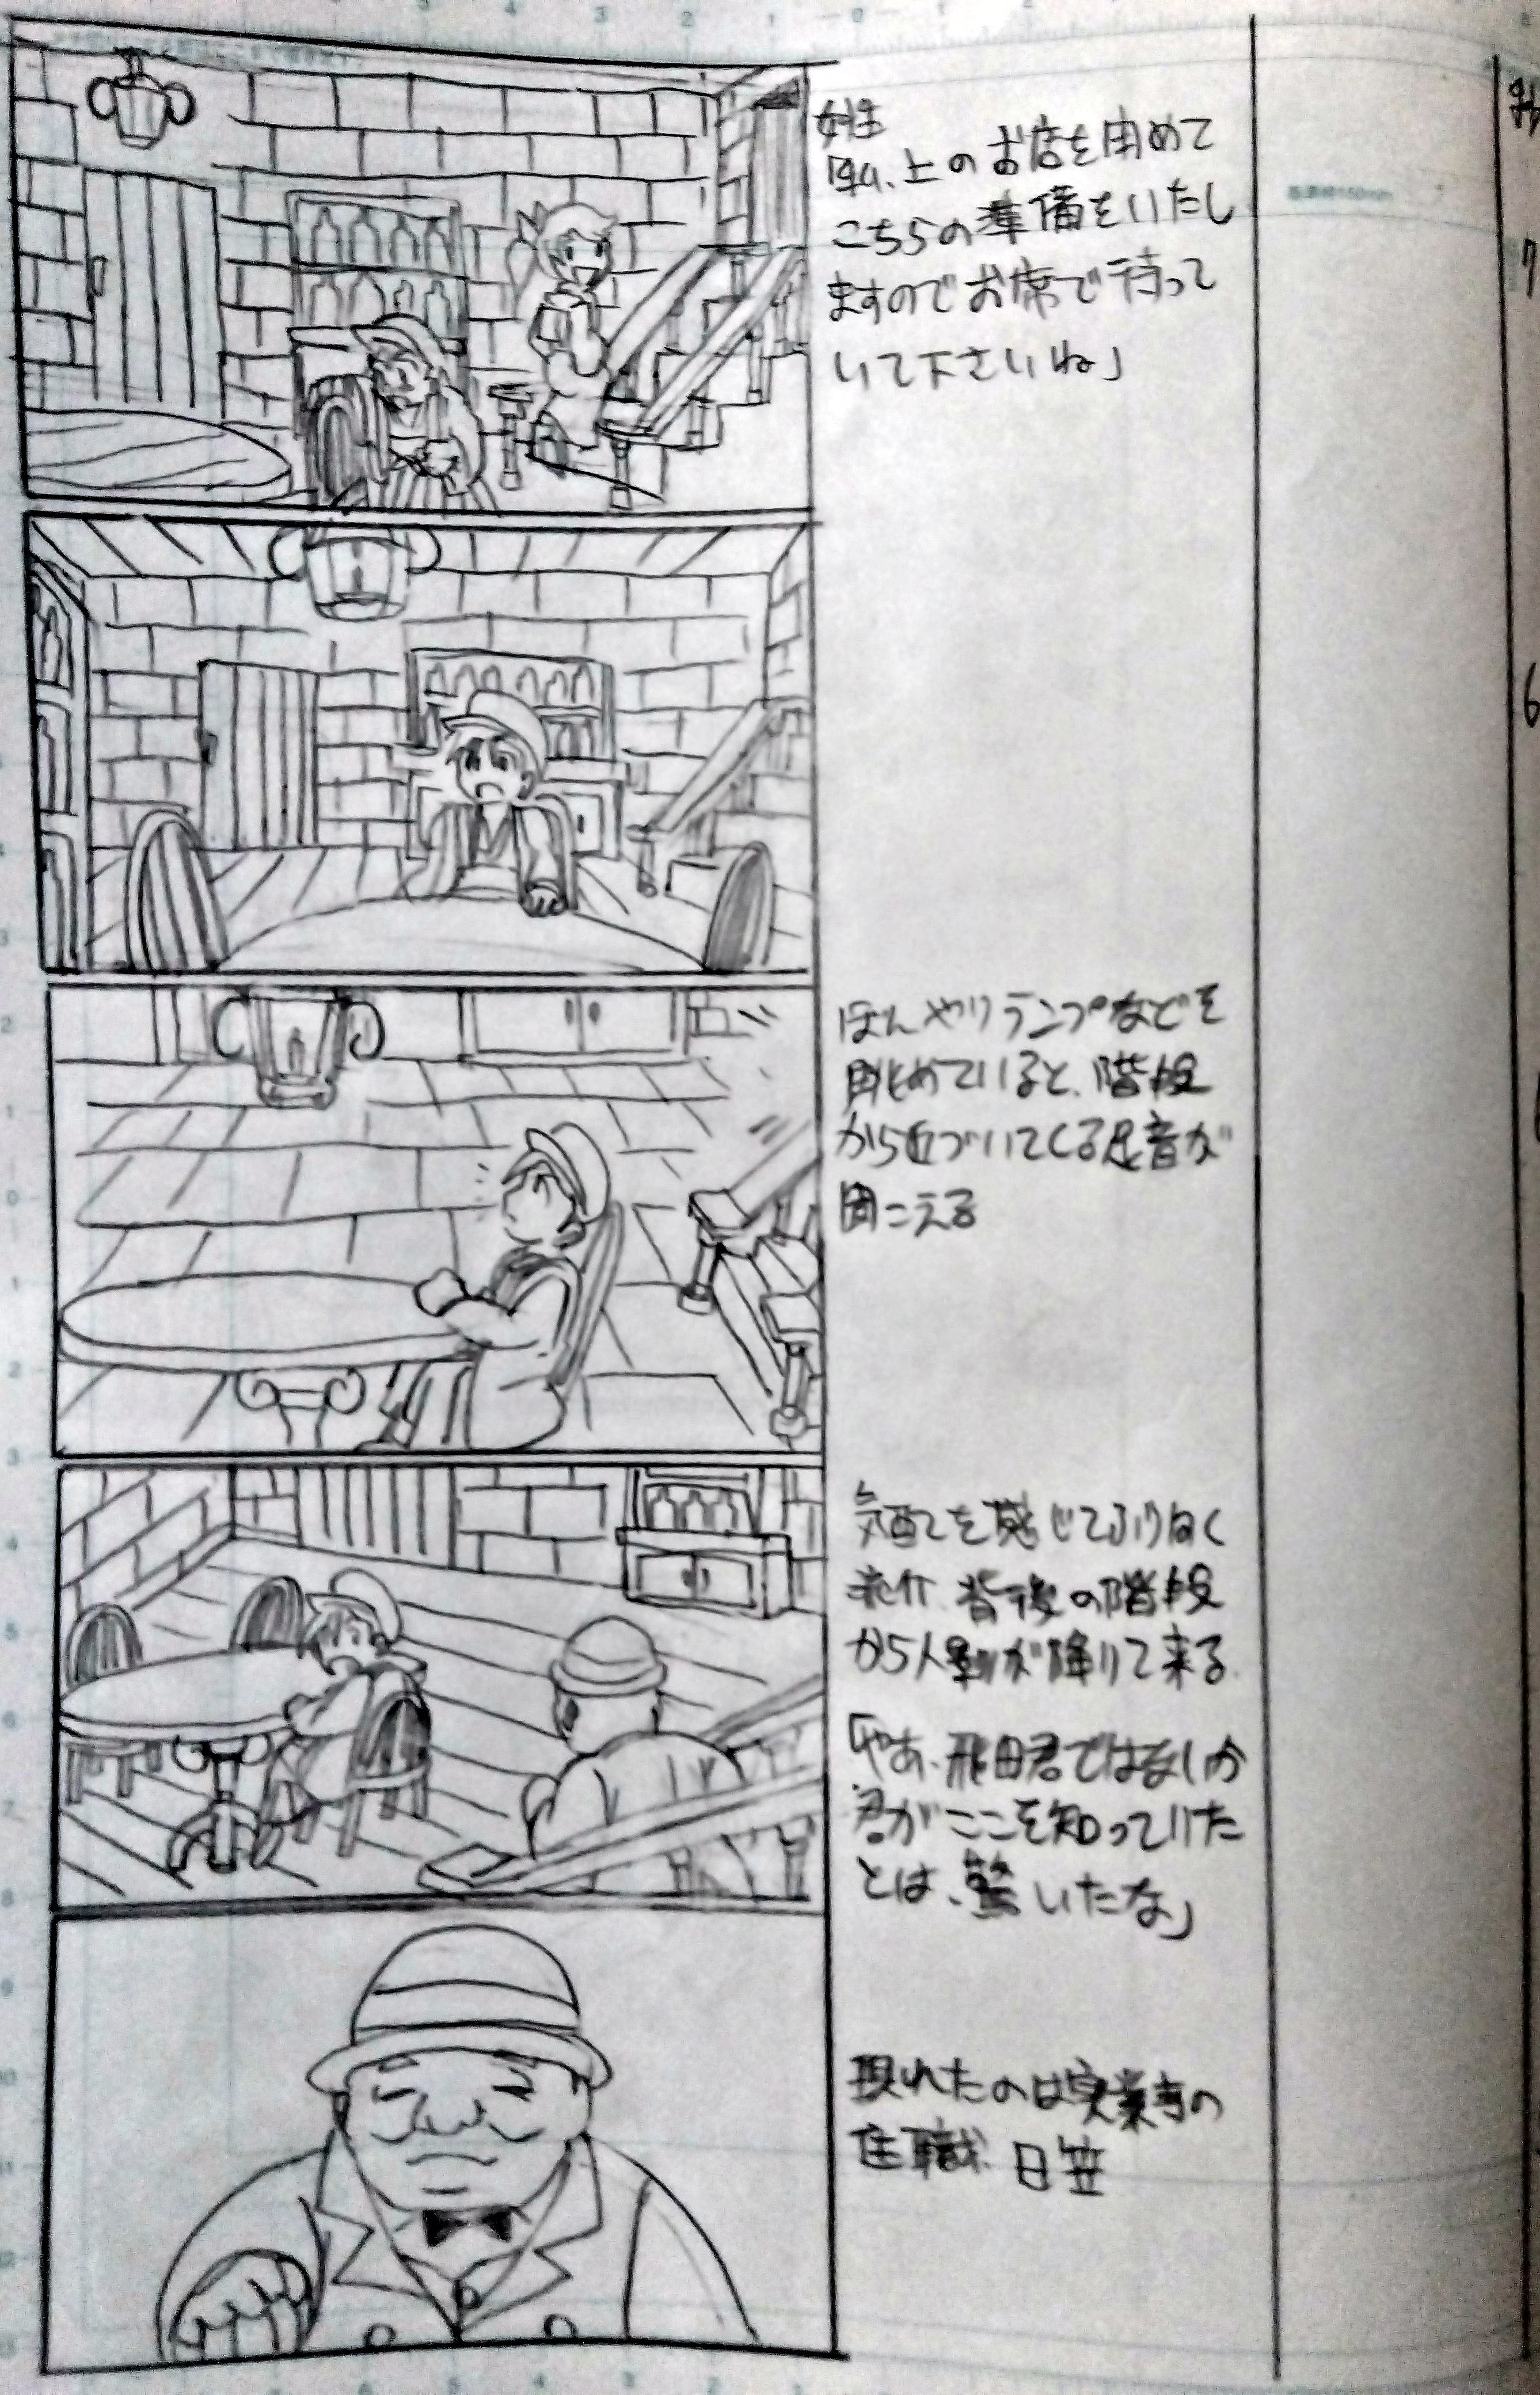 女性
「私、上のお店を閉めて
こちらの準備をいたし
ますのでお席で待って
いて下さいね」
ぼんやりランプなどを
眺めていると、階段
から近づいてくる足音が
聞こえる
気配を感じてふり向く
背後の階段
から人影が降りて来る
「やあ、飛田君ではないか
君がここを知っていた
とは、驚いたな」
現れたのは実業寺の
住職 日笠
7
6